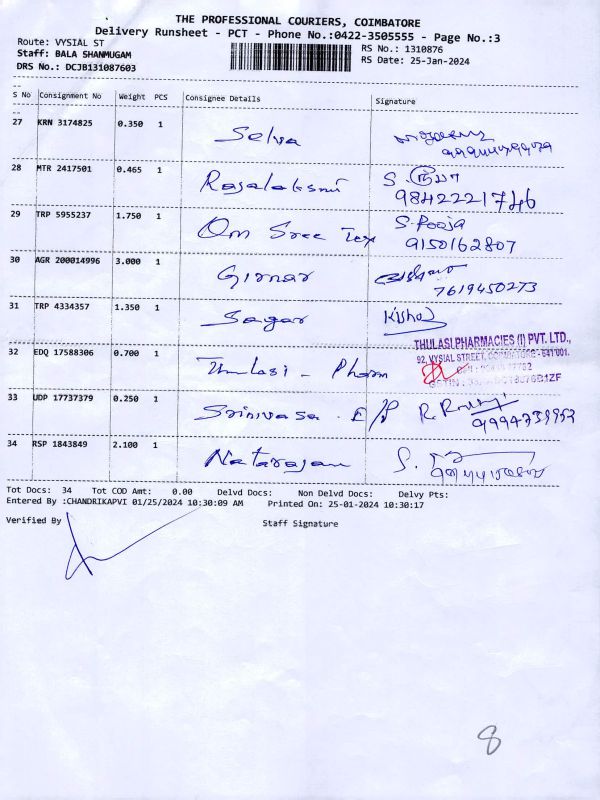 THE PROFESSIONAL COURIERS, COIMBATORE
Delivery Runsheet - PCT - Phone No.:0422-3505555 - Page No.:3
Route: VYSIAL ST
RS No.: 1310876
Staff: BALA SHANMUGAM
RS Date: 25-Jan-2024
DRS No.: DCJB131087603
S No Consignment No Weight PCS Consignee Details Signature
27 KRN 3174825 0.350 1 Selva
28 MTR 2417501 0.465 1 Rajalakshmi S.
9842221746
29 TRP 5955237 1.750 1 Om Sree Tex S. Pooja
9150162807
30 AGR 200014996 3.000 1 Girnar
7619450273
31 TRP 4334357 1.350 1 Sagar
THULASI PHARMACIES (I) PVT. LTD.,
92, VYSIAL STREET, COIMBATORE - 641 001.
32 EDQ 17588306 0.700 1 Thulasi - Pharm
33 UDP 17737379 0.250 1 Srinivasa
34 RSP 1843849 2.100 1 Natarajan S.
Tot Docs: 34 Tot COD Amt: 0.00 Delvd Docs: Non Delvd Docs: Delvy Pts:
Entered By :CHANDRIKAPVI 01/25/2024 10:30:09 AM Printed On: 25-01-2024 10:30:17
Verified By Staff Signature
8